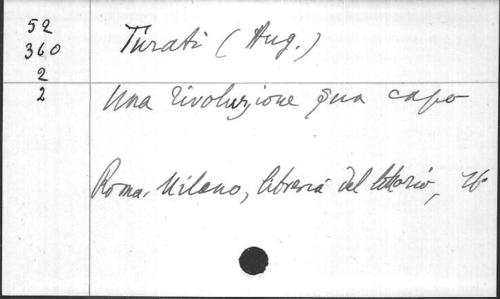 52
360
2
2
Turati (Aug.)
Una rivoluzione qua capo
Roma-Milano, libreria del littorio,